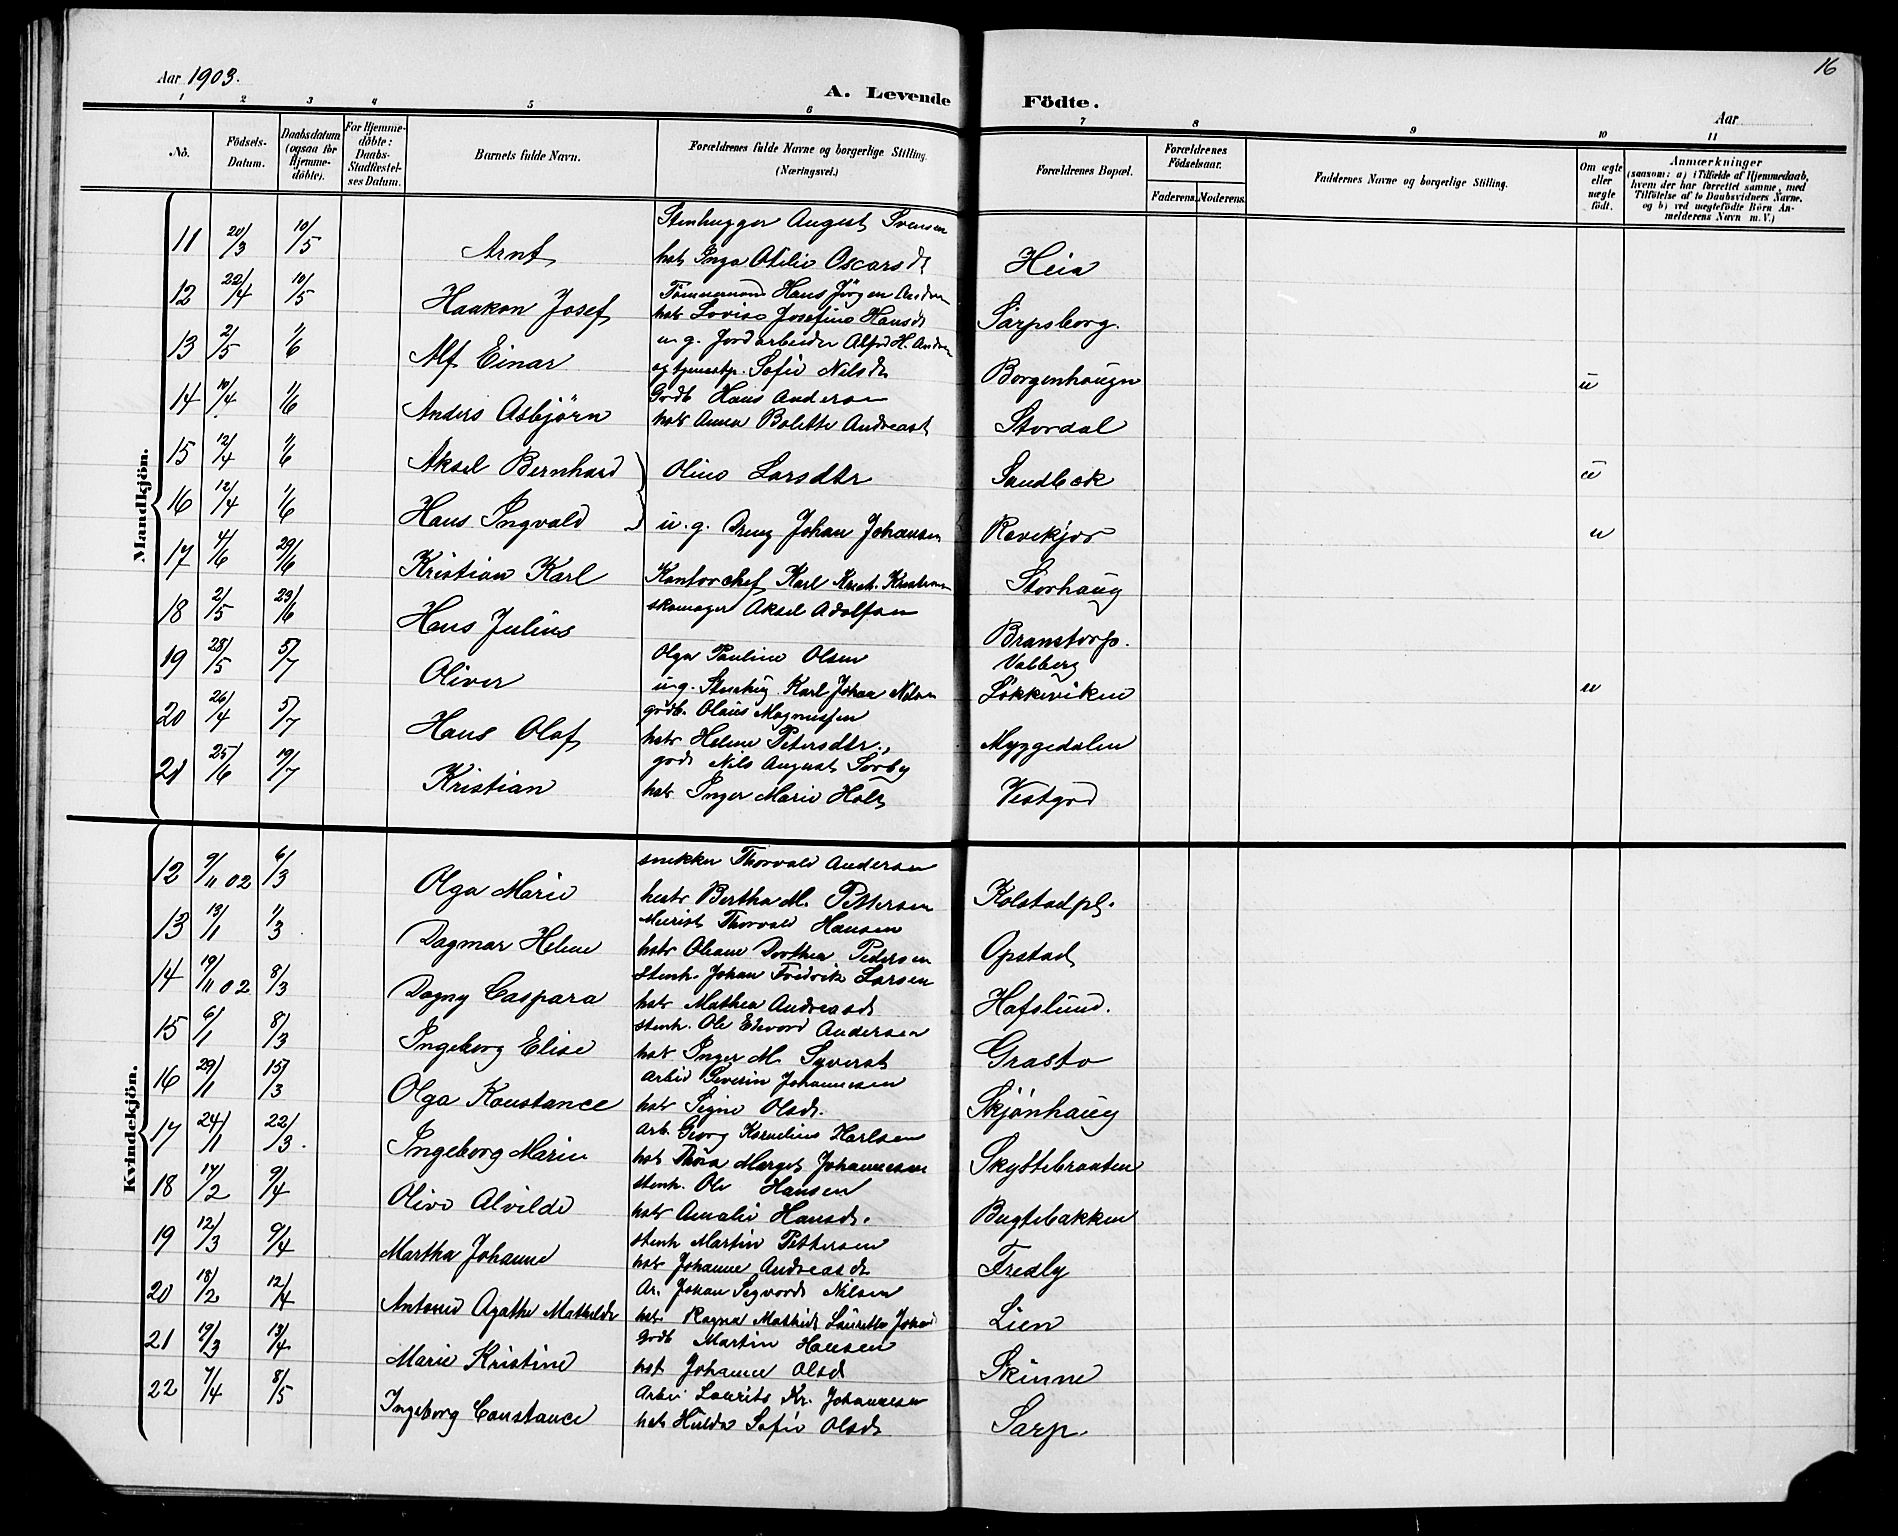 Aar 1903.
A. Levende Födte.
Aar
16
1 2 3 4 5 6 7 8 9 10 11
No.
Födsels-Datum.
Daabsdatum (ogsaa for Hjemme-döbte).
For Hjemme-döbte: Daabs-Stadfæstel-ses Datum.
Barnets fulde Navn.
Forældrenes fulde Navne og borgerlige Stilling. (Næringsvei.)
Forældrenes Bopæl.
Forældrenes Födselsaar.
Faderens. Moderens.
Faddernes Navne og borgerlige Stilling.
Om ægte eller uægte födt.
Anmærkninger
(saasom: a) i Tilfælde af Hjemmedaab, hvem der har forrettet samme, med Tilföielse af to Daabsvidners Navne. og b) ved uægtefödte Börn Anmelderens Navn m. V.)
Mandkjön.
11 20/3 10/5 Arnt Stenhugger August Svensen
hst Inga Otilie Oscarsdt Heia
12 22/4 10/5 Haakon Josef Tömmermand Hans Jörgen Andersen
hst Lovise Josefine Hansdt Sarpsborg.
13 2/5 1/6 Alf Einar u. g. Jordarbeider Alfred H. Andersen
og tjenestp. Sofie Nilsdt Borgenhaugen u
14 10/4 1/6 Anders Asbjörn Grdb Hans Andersen
hst Anna Bolette Andreasd Stordal
15 12/4 1/6 Aksel Bernhard } Oline Larsdtr Sandbæk u
16 12/4 1/6 Hans Ingvald } u. g. Dreng Johan Johansen Revekjær u
17 4/6 29/6 Kristian Karl Kontorchef Karl Krist. Kristensen Storhaug
18 2/5 29/6 Hans Julius skomager Aksel Adolfsen Branstorp.
19 28/5 5/7 Oliver Olga Pauline Olsen Valberg
u. g. Stenhug. Karl Johan Nilsen Lökkeviken u
20 26/4 5/7 Hans Olaf grdb. Olaus Magnussen
hst Helene Petersdtr. Myggedalen
21 25/6 19/7 Kristian grdb Nils August Sørby
hst. Inger Marie Holt Vestgrd
Kvindekjön.
12 9/11 02 6/3 Olga Marie snekker Thorvald Andersen
hustr Bertha M. Pettersen Kolstadpl.
13 13/1 1/3 Dagmar Helene Murist Thorvald Hansen
hst Oleane Dorthea Pedersen Opstad
14 19/11 02 8/3 Dagny Caspara Stenh. Johan Fredrik Larsen
hst Mathea Andreasd Hafslund.
15 6/1 8/3 Ingeborg Elise stenh. Ole Edvard Andersen
hst Inger M. Syverst Grasto
16 29/1 15/3 Olga Konstance Arbid Severin Johannesen
hst Signe Olsdt. Skjönhaug
17 24/1 22/3. Ingeborg Marie Arb. Georg Kornelius Karlsen
hst Thora Marget Johannesen Skyttebraaten
18 17/2 9/4 Olive Alvilde stenh. Ole Hansen
hst Amalie Hansdt. Bugtebakken
19 12/3 9/4 Martha Johanne stenh Martin Pettersen
hst Johanne Andreasdt Fredly
20 18/2 12/4 Antonie Agathe Mathilde Ar. Johan Sigvardt Nilsen
hst Ragna Mathilde Lauretta Johansd Lien
21 19/3 13/4 Marie Kristine Grdb Martin Hansen
hst Johanne Olsdt Skinne
22 7/4 8/5 Ingeborg Constance Arbei Laurits Kr. Johannesen
hst Hulda Sofie Olsdt Sarp.